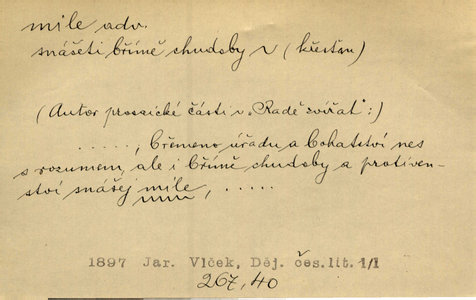 mile adv.
snášeti břímě chudoby ~ (křesťan)
(Autor prosaické části v „Radě zvířat":)
....., břemeno úřadu a bohatství nes
s rozumem, ale i břímě chudoby a protiven-
ství snášej mile, .....
1897 Jar. Vlček, Děj. čes. lit. 1/1
267,40